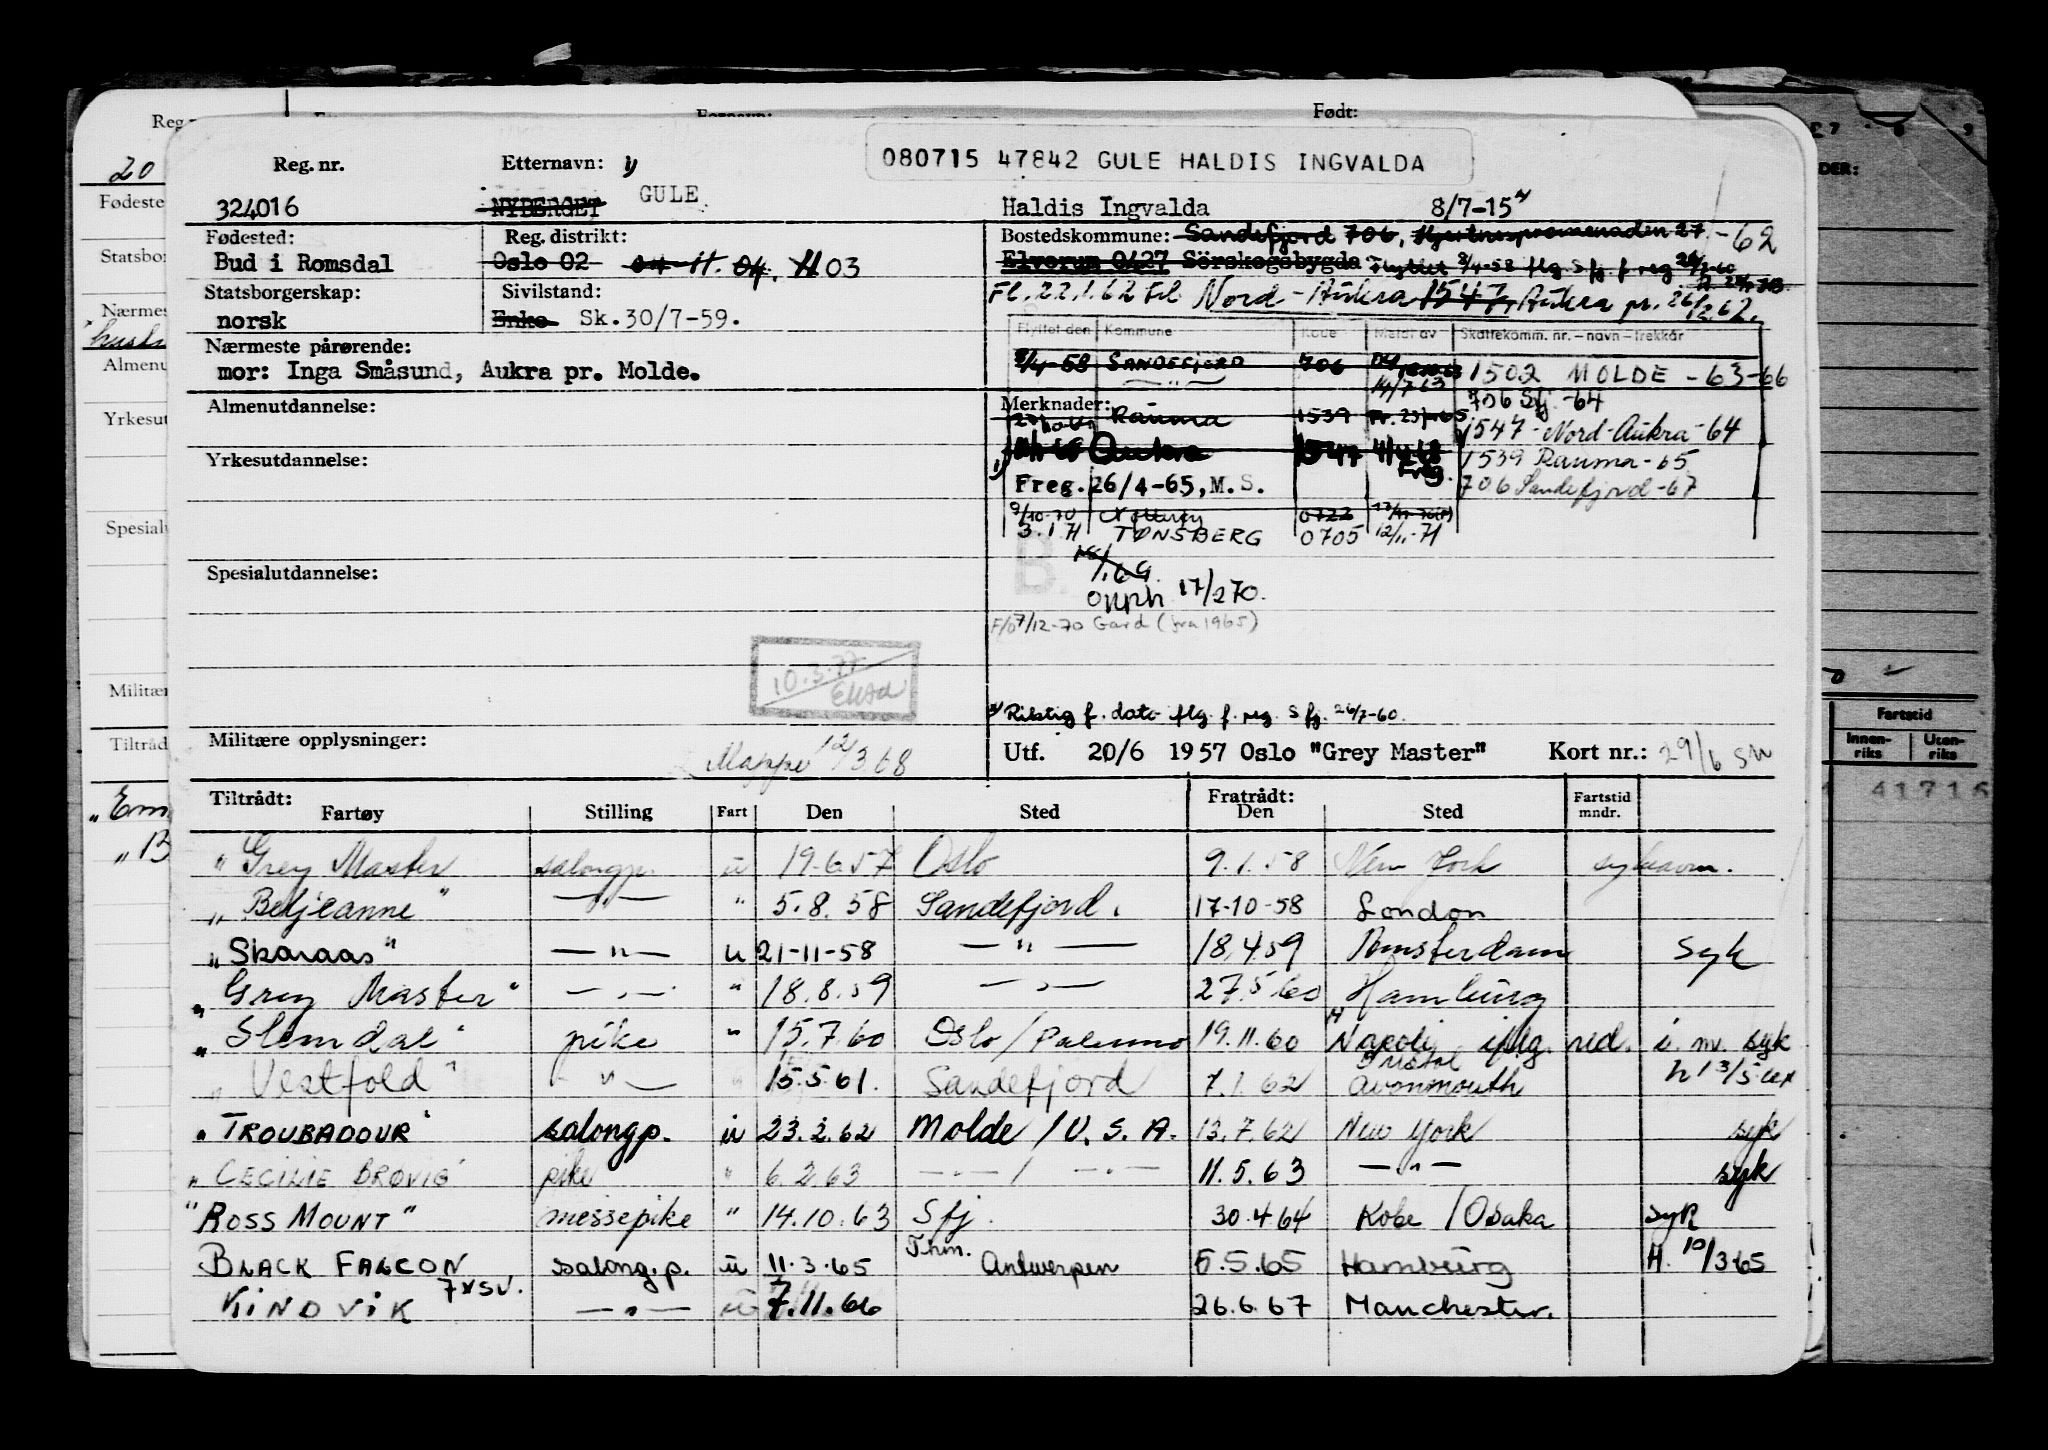 Født:
080715 47842 GULE HALDIS INGVALDA
Reg. nr. Etternavn: 1)
324016 NYBERGET GULE Haldis Ingvalda 8/7-15
Fødested: Reg. distrikt: Bostedskommune: Sandefjord 706, Hjertnespromenaden 27 -62
Bud i Romsdal Oslo 02 04 - 11. 04. 11 03 Elverum 0427 Sörskogsbygda Flyttet 8/4-58 flg. Sfj. f. reg. 26/7-60
Fl. 22.1.62 til Nord-Aukra 1547, Aukra pr. 26/2.62.
Statsborgerskap: Sivilstand:
norsk Enke Sk.30/7-59.
Flyttet den Kommune Kode Meldt av Skattekomm. nr. – navn – trekkår
Nærmeste pårørende:
mor: Inga Småsund, Aukra pr. Molde.
8/4-58 SANDEFJORD 706 14/7 63 1502 MOLDE - 63-66
706 Sfj. -64
Almenutdannelse: Merknader:
Rauma 1539 1547 - Nord-Aukra - 64
Aukra 1547 Freg. 1539 Rauma - 65
Yrkesutdannelse:
1) Freg. 26/4-65, M.S. 706 Sandefjord - 67
9/10-70 Nøtterøy 0722
3.1.71 TØNSBERG 0705 12/11-71
B.
Spesialutdannelse:
Opph 17/270.
7/12-70 Gard (fra 1965)
10.3.77
Riktig f. dato flg. f. reg. Sfj. 26/7-60.
Militære opplysninger: Mappe 12/3 68
Utf. 20/6 1957 Oslo "Grey Master" Kort nr.: 29/6 SM
Tiltrådt: Fratrådt:
Fartøy Stilling Fart Den Sted Den Sted Fartstid mndr.
"Grey Master salongp. u 19.6.57 Oslo 9.1.58 New York
"Beljeanne" —"— " 5.8.58 Sandefjord. 17-10-58 London
"Skaraas" —"— u 21-11-58 —"— 18.4.59 Amsterdam syk
"Grey Master" —"— " 18.8.59 —"— 27.5.60 Hamburg
"Slemdal" pike " 15.7.60 Oslo/Palermo 19.11.60 Napoli iflg. red. i. m. syk
"Vestfold" —"— " 15.5.61. Sandefjord 7.1.62 Bristol Avonmouth
"TROUBADOUR" salongp. u 23.2.62 Molde / U.S.A. 13.7.62 New York syk
"CECILIE BRØVIG" pike " 6.2.63 —"— / —"— 11.5.63 —"— syk
"ROSS MOUNT" messepike " 14.10.63 Sfj. 30.4.64 Kobe / Osaka syk
BLACK FALCON salong.p. u 11.3.65 Thm. Antwerpen 5.5.65 Hamburg H. 10/3 65
KINDVIK —"— u 7.11.66 26.6.67 Manchester.
Fødeste
Statsbo
Nærmes
Almenu
Yrkesut
Spesial
Militær
Tiltråd
DER:
Fartstid
Innen-riks Uten-riks
41716